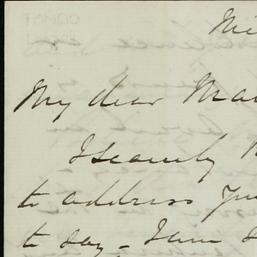 My dear Ma
I scarcely
to address you
to say - I am